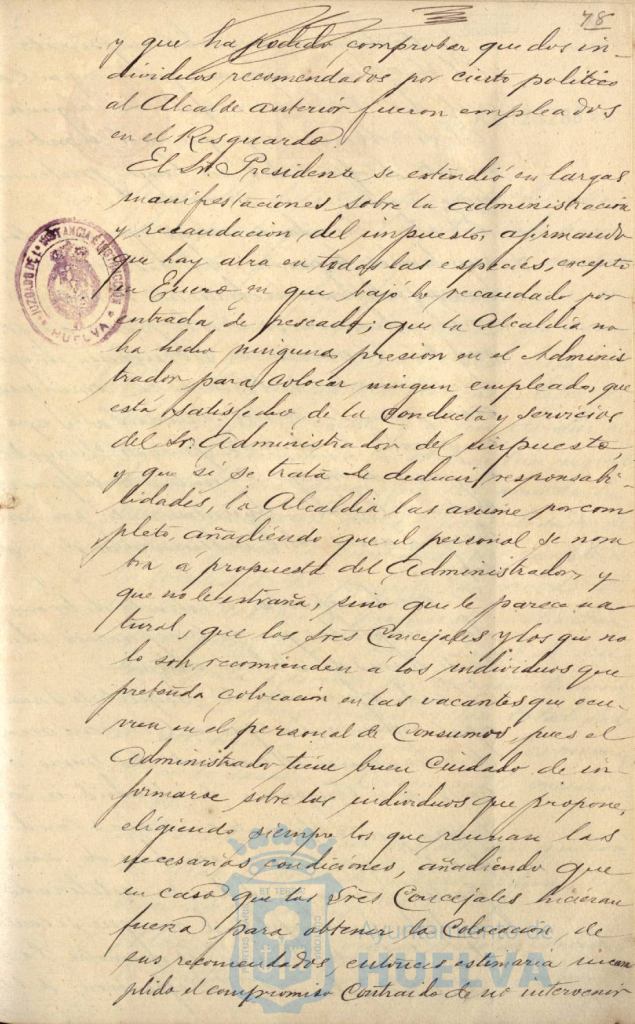 78
y que ha podido comprobar que dos in-
dividuos recomendados por cierto político
al Alcalde anterior fueron empleados
en el Resguardo.
El Sr. Presidente se estendió en largas
manifestaciones sobre la administración
y recaudación del impuesto, afirmando
que hay alza en todas las especies, excepto
en Enero, en que bajó lo recaudado por
entrada de pescado; que la Alcaldía no
ha hecho ninguna presion en el Adminis
trador para colocar ningun empleado, que
está satisfecho de la conducta y servicios
del Sr. Administrador del impuesto,
y que si se trata de deducir responsabi-
lidades, la Alcaldia las asume por com
pleto, añadiendo que el personal se nom
bra á propuesta del Administrador, y
que no le estraña, sino que le parece na
tural, que los Sres Concejales y los que no
lo son recomienden á los individuos que
pretenda colocación en las vacantes que ocu-
rren en el personal de Consumos, pues el
Administrador tiene buen cuidado de in-
formarse sobre los individuos que propone,
eligiendo siempre los que reunan las
necesarias condiciones, añadiendo que
en caso que los Sres Concejales hicieran
fuerza para obtener la colocacion de
sus recomendados, entonces estimaria incum
plido el compromiso contraido de no intervenir
JUZGADO DE 1ª INSTANCIA E INSTRUCCION
HUELVA
Ayuntamiento de
HUELVA